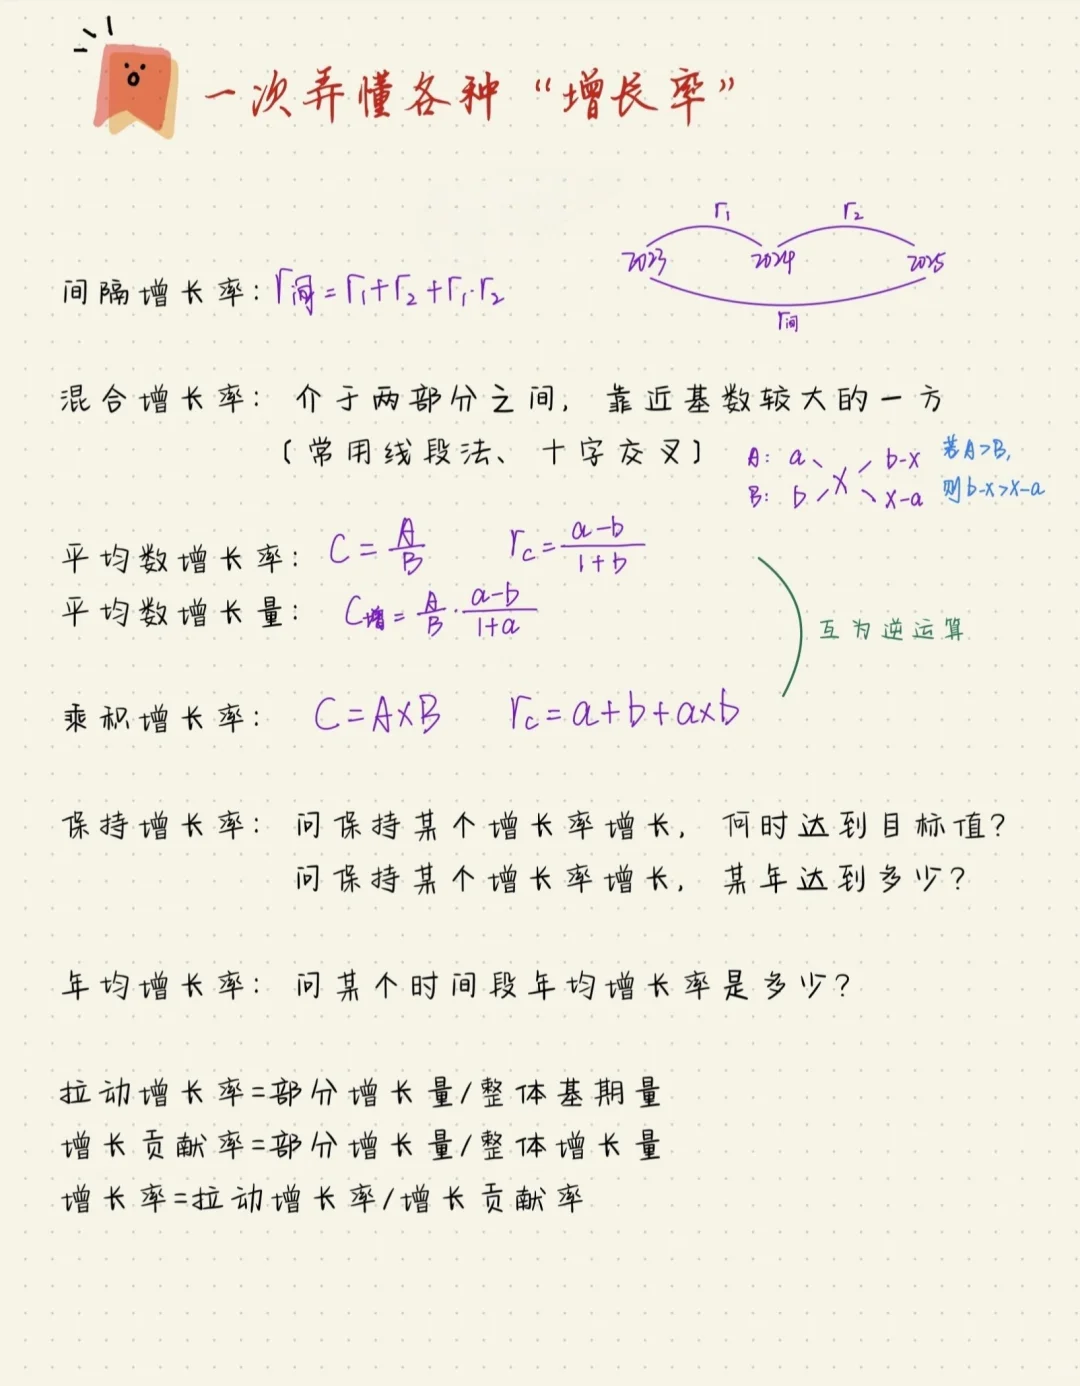 一次弄懂各种“增长率”
r₁ r₂
2023 2024 2025
r间
间隔增长率：r间=r₁+r₂+r₁·r₂
混合增长率：介于两部分之间，靠近基数较大的一方
（常用线段法、十字交叉）
A：a b-x 若A>B，
X
B：b x-a 则b-x>x-a
平均数增长率：C=A/B rc=(a-b)/(1+b)
平均数增长量：C增=A/B·(a-b)/(1+a)
互为逆运算
乘积增长率：C=A×B rc=a+b+a×b
保持增长率：问保持某个增长率增长，何时达到目标值？
问保持某个增长率增长，某年达到多少？
年均增长率：问某个时间段年均增长率是多少？
拉动增长率=部分增长量/整体基期量
增长贡献率=部分增长量/整体增长量
增长率=拉动增长率/增长贡献率